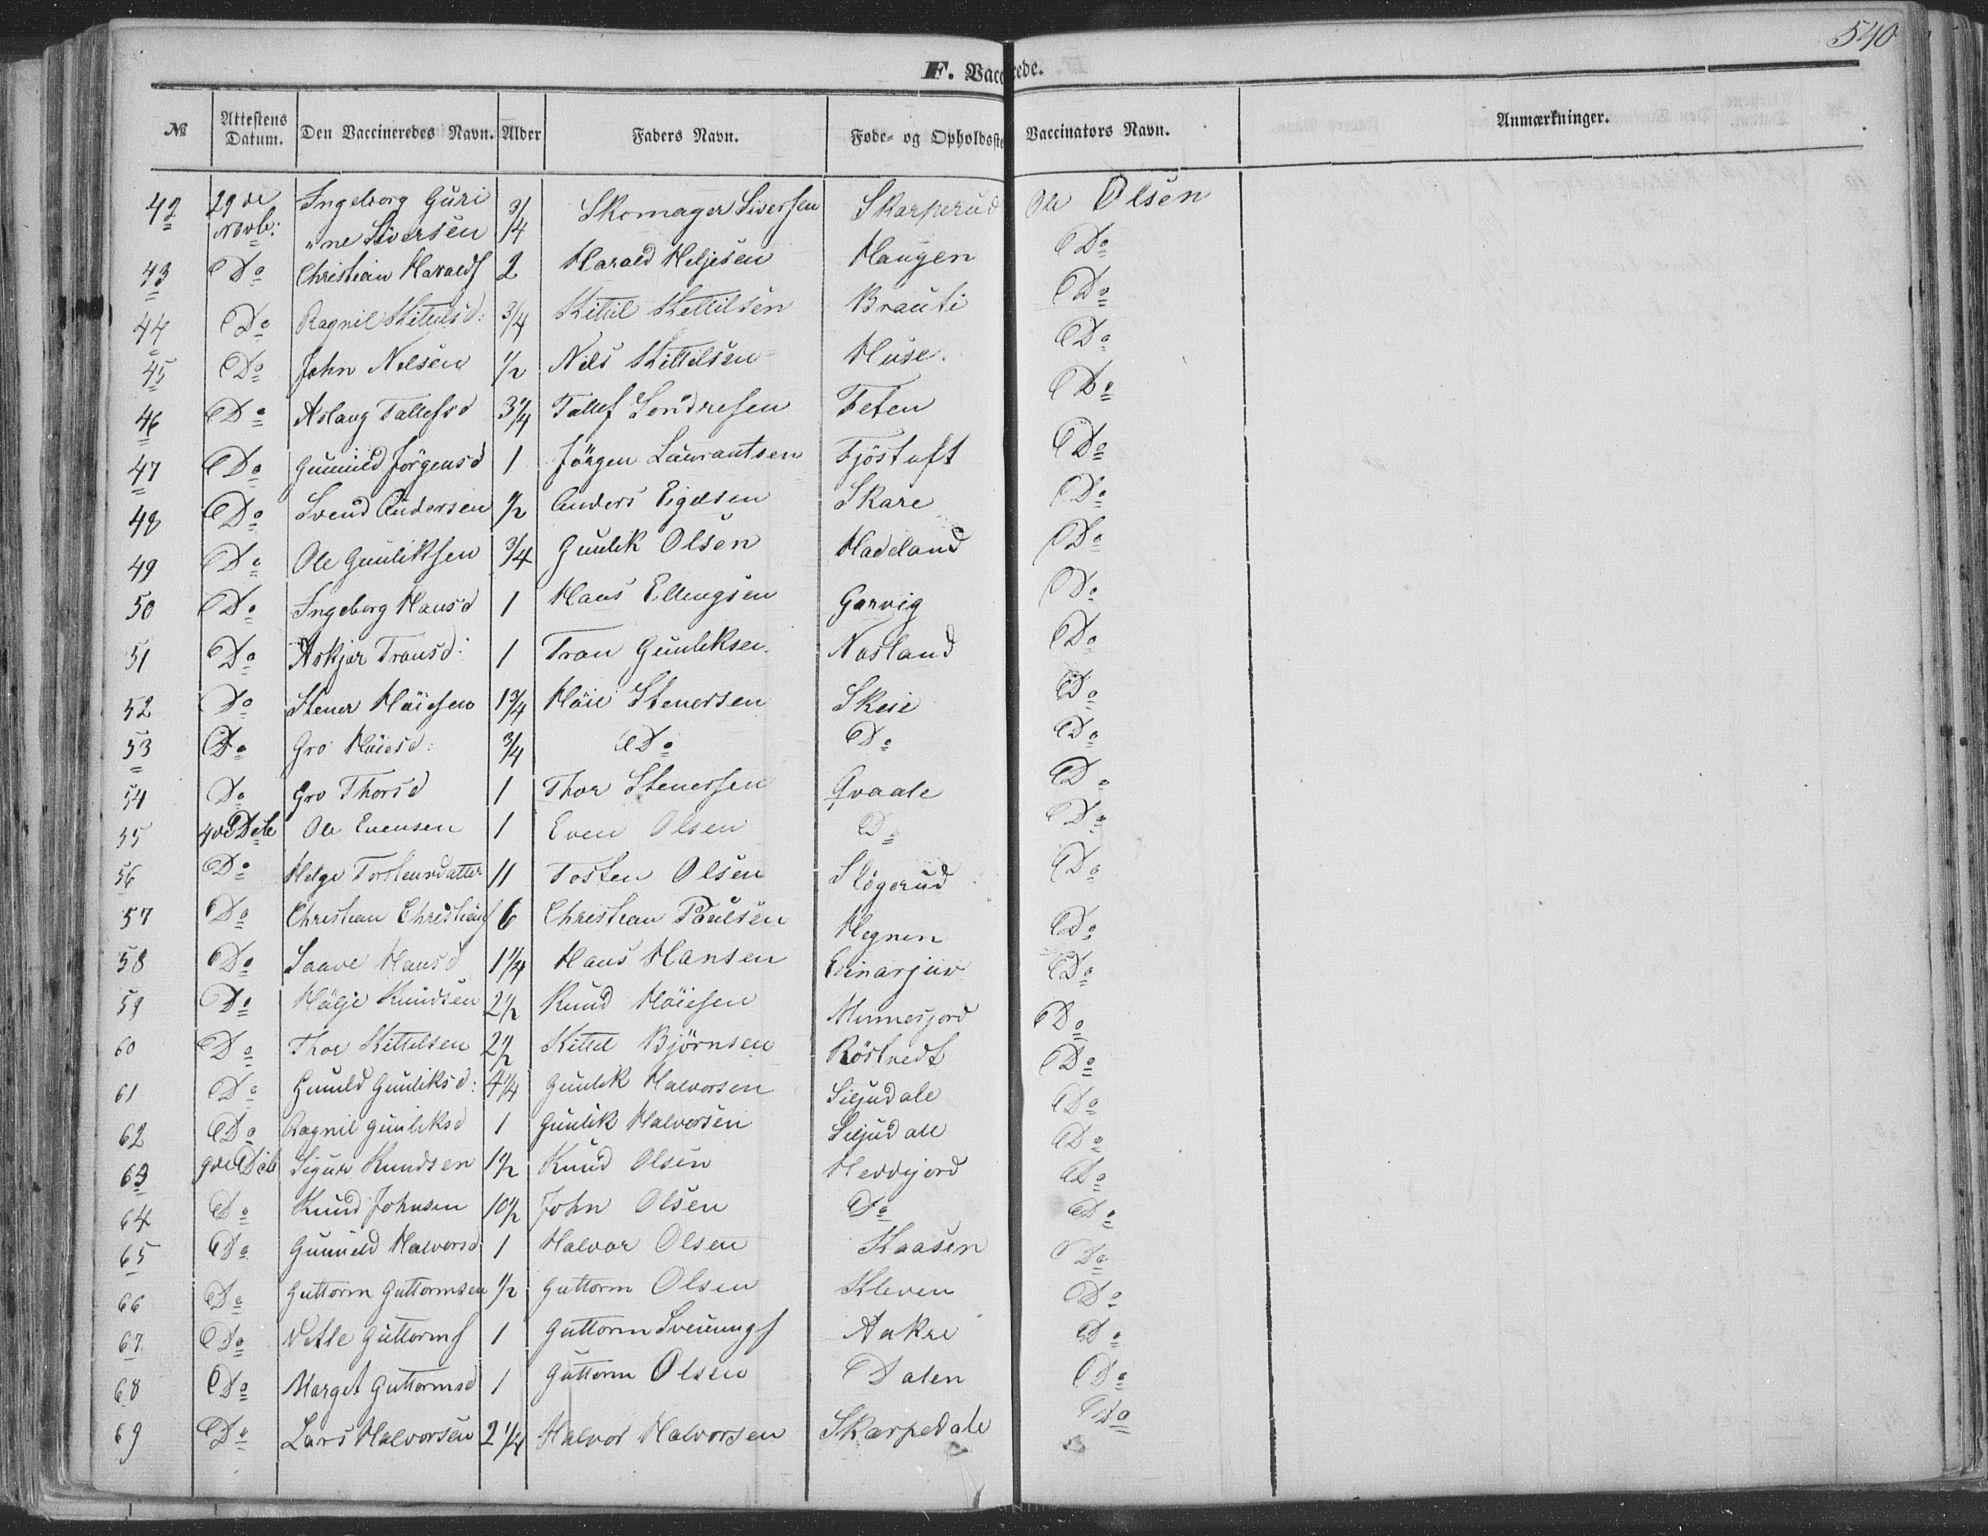 540
F. Vaccinerede.
№ Attestens Datum. Den Vaccineredes Navn. Alder Faders Navn. Føde- og Opholdsste Vaccinators Navn. Anmærkninger.
42 29de Novb: Ingeborg Guri 3/4 Skomager Siversen Skarperud Ole Olsen
"ne Siversen
43 Do Christian Haralds 2 Harald Heljesen Haugen Do
44 Do Ragnil Kittilsd: 3/4 Kittil Kettilsen Brauti Do
45 Do John Nilsen 1/2 Nils Kittilsen Huse. Do
46 Do Aslaug Tallefsd 3 1/4 Tallef Sondresen Feten Do
47 Do Gunnild Jørgensd 1 Jørgen Laurantsen Fjöstuft Do
48 Do Svend Andersen 1/2 Anders Eigilsen Skare Do
49 Do Ole Gunliksen 3/4 Gunlik Olsen Hadeland Do
50 Do Ingeborg Hansd 1 Hans Ellingsen Garvig Do
51 Do Askjær Transd: 1 Tran Gunliksen Nasland Do
52 Do Stener Höiesen 1 3/4 Höie Stenersen Skeie Do
53 Do Gro Höiesd: 3/4 Do Do Do
54 Do Gro Thorsd 1 Thor Stenersen Qvaale Do
55 4de Decb Ole Evensen 1 Even Olsen Do Do
56 Do Helge Torstensdatter 11 Tosten Olsen Slögerud Do
57 Do Christian Christians 6 Christian Poulsen Hegnen Do
58 Do Saave Hansd 1 1/4 Hans Hansen Einarjuv Do
59 Do Hölje Knudsen 2 1/2 Knud Höiesen Munnesjord Do
60 Do Thor Kittelsen 2 1/2 Kittel Björnsen Röstvedt Do
61 Do Gunild Gunliksd: 4 1/4 Gunlik Halvorsen Siljudale Do
62 Do Ragnil Gunliksd 1 Gunlik Halvorsen Siljudale Do
63 9de Decb Sigur Knudsen 1 1/2 Knud Olsen Heddejord Do
64 Do Knud Johnsen 10 1/2 John Olsen Do Do
65 Do Gunnild Halvorsd 1 Halvor Olsen Kaasen Do
66 Do Guttorm Guttormsen 1/2 Guttorm Olsen Kleven Do
67 Do Vetle Guttorms 1 Guttorm Sveinungs Aakre Do
68 Do Marget Guttormsd 1 Guttorm Olsen Dalen Do
69 Do Lars Halvorsen 2 1/4 Halvor Halvorsen Skarpedale Do